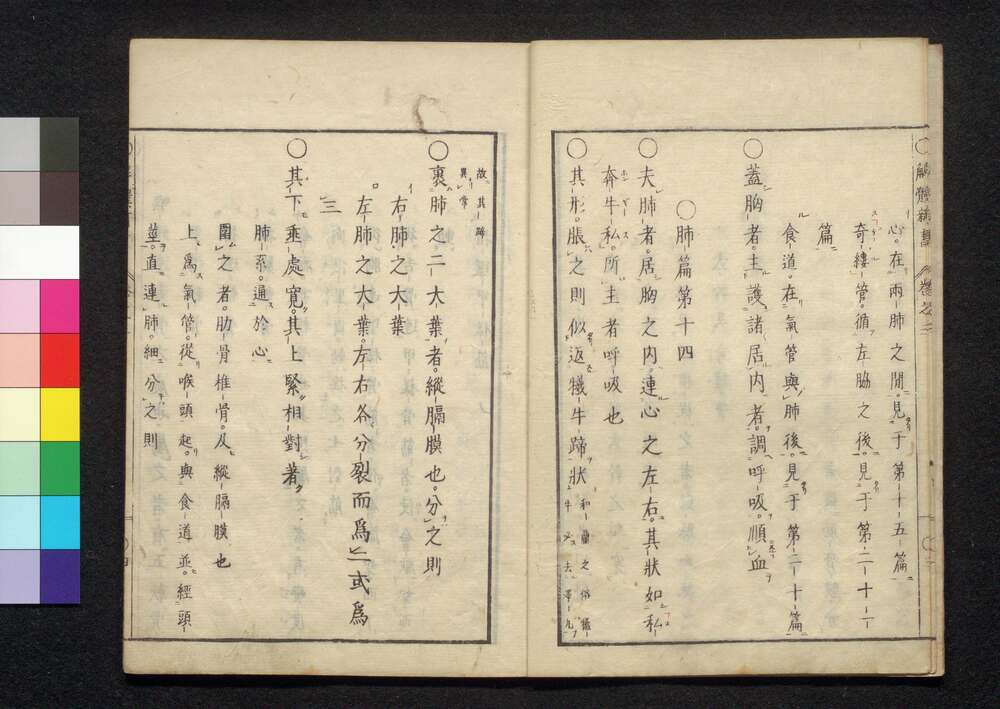 解體新書 卷之三
心。在兩肺之間。見于第十五篇
奇縷管。循左脇之後。見于第二十一
篇
食道。在氣管與肺後。見于第二十篇
○蓋胸者。主護諸居内者。調呼吸。順血
○肺篇第十四
○夫肺者。居胸之内。連心之左右。其狀如私
奔牛私。所主者呼吸也
○其形。脹之則似返犢牛蹄狀 和蘭之俗。
牛 去 九
故其蹄
異常
○裹肺之二大葉者。縱膈膜也。分之則
右肺之大葉
左肺之大葉。左右各分裂而爲二或爲
三
○其下垂處寛。其上緊相對著
肺系。通於心
圍之者。肋骨椎骨。及縱膈膜也
上爲氣管。從喉頭起。與食道並。經頭
莖。直連肺。細分之則